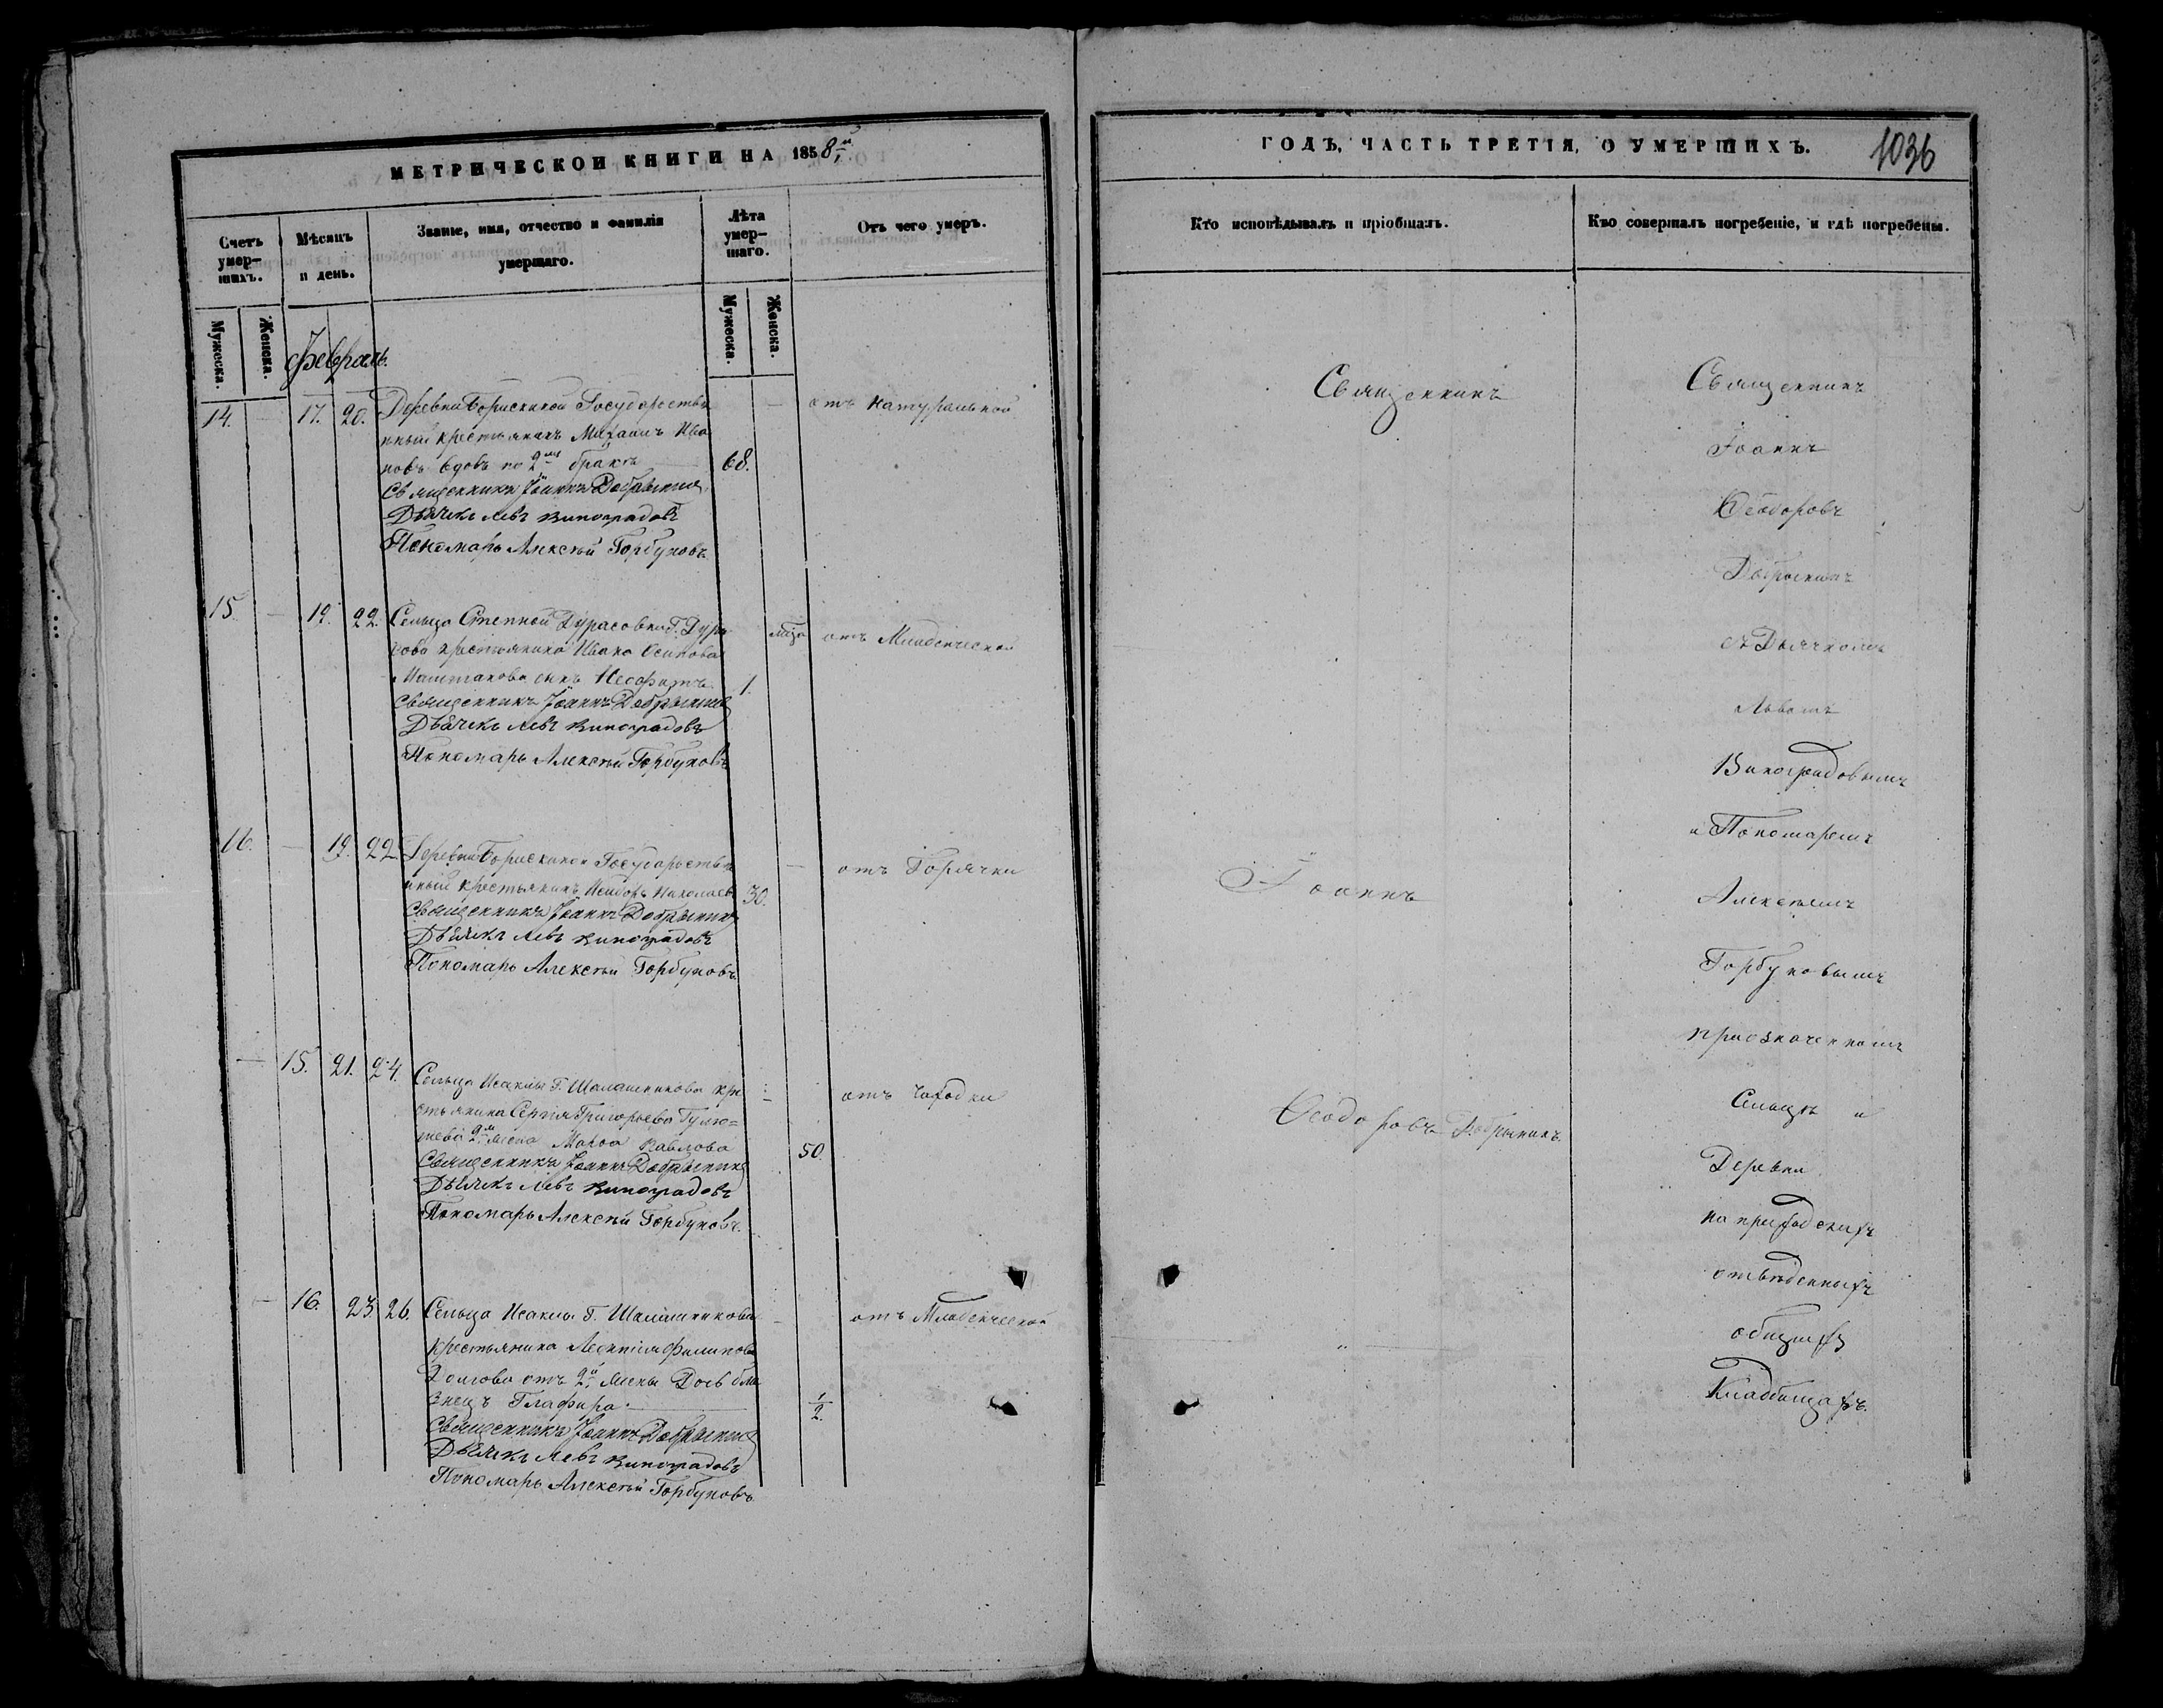 МЕТРИЧЕСКОЙ КНИГИ НА 1858й
Счетъ умер-шихъ.
Мѣсяцъ и день.
Званіе, имя, отчество и фамилія умершаго.
Лѣта умер-шаго.
Отъ чего умеръ.
Мужеска.
Женска.
Мужеска.
Женска.
Февраль.
14. — 17. 20. Деревни Борискиной Государствен — отъ натуральной
ный крестьянинъ Михаилъ Ива
новъ вдовъ по 2мъ бракѣ 68.
Священникъ Іоаннъ Добрынинъ
Дьячекъ Левъ Виноградовъ
Пономарь Алексѣй Горбуновъ
15. — 19. 22. Сельца Степной Дурасовки Г. Дура отъ Младенческой
сова крестьянина Ивана Осипова
сынъ Неофитъ 1.
Священникъ Іоаннъ Добрынинъ
Дьячекъ Левъ Виноградовъ
Пономарь Алексѣй Горбуновъ
16. — 19. 22. Деревни Борискиной Государствен — отъ Горячки
ный крестьянинъ Исидоръ Николаевъ 30.
Священникъ Іоаннъ Добрынинъ
Дьячекъ Левъ Виноградовъ
Пономарь Алексѣй Горбуновъ
— 15. 21. 24. Сельца Исаклы Г. Шалашникова кре — отъ Чаходки
стьянина Сергія Григорьева
2я жена Марфа Павлова 50.
Священникъ Іоаннъ Добрынинъ
Дьячекъ Левъ Виноградовъ
Пономарь Алексѣй Горбуновъ.
— 16. 23. 26. Сельца Исаклы Г. Шалашникова — отъ Младенческой
крестьянина Леонтія Филипова
Долгова отъ 2й жены Дочь бли
знецъ Глафира. 1/2.
Священникъ Іоаннъ Добрынинъ
Дьячекъ Левъ Виноградовъ
Пономарь Алексѣй Горбуновъ
ГОДЪ, ЧАСТЬ ТРЕТІЯ, О УМЕРШИХЪ.
1036
Кто исповѣдывалъ и пріобщалъ.
Кто совершалъ погребеніе, и гдѣ погребены.
Священникъ
Іоаннъ
Феодоровъ Добрынинъ.
Священникъ
Іоаннъ
Феодоровъ
Добрынинъ
съ Дьячкомъ
Львомъ
Виноградовымъ
и Пономаремъ
Алексѣемъ
Горбуновымъ
при означенномъ
Сельцѣ и
Деревни
на приходскихъ
отведенныхъ
общихъ
Кладбищахъ.